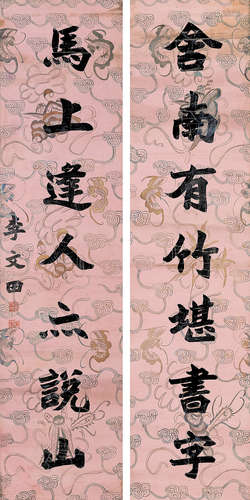 舍南有竹堪書字
馬上逢人亦說山
李文田